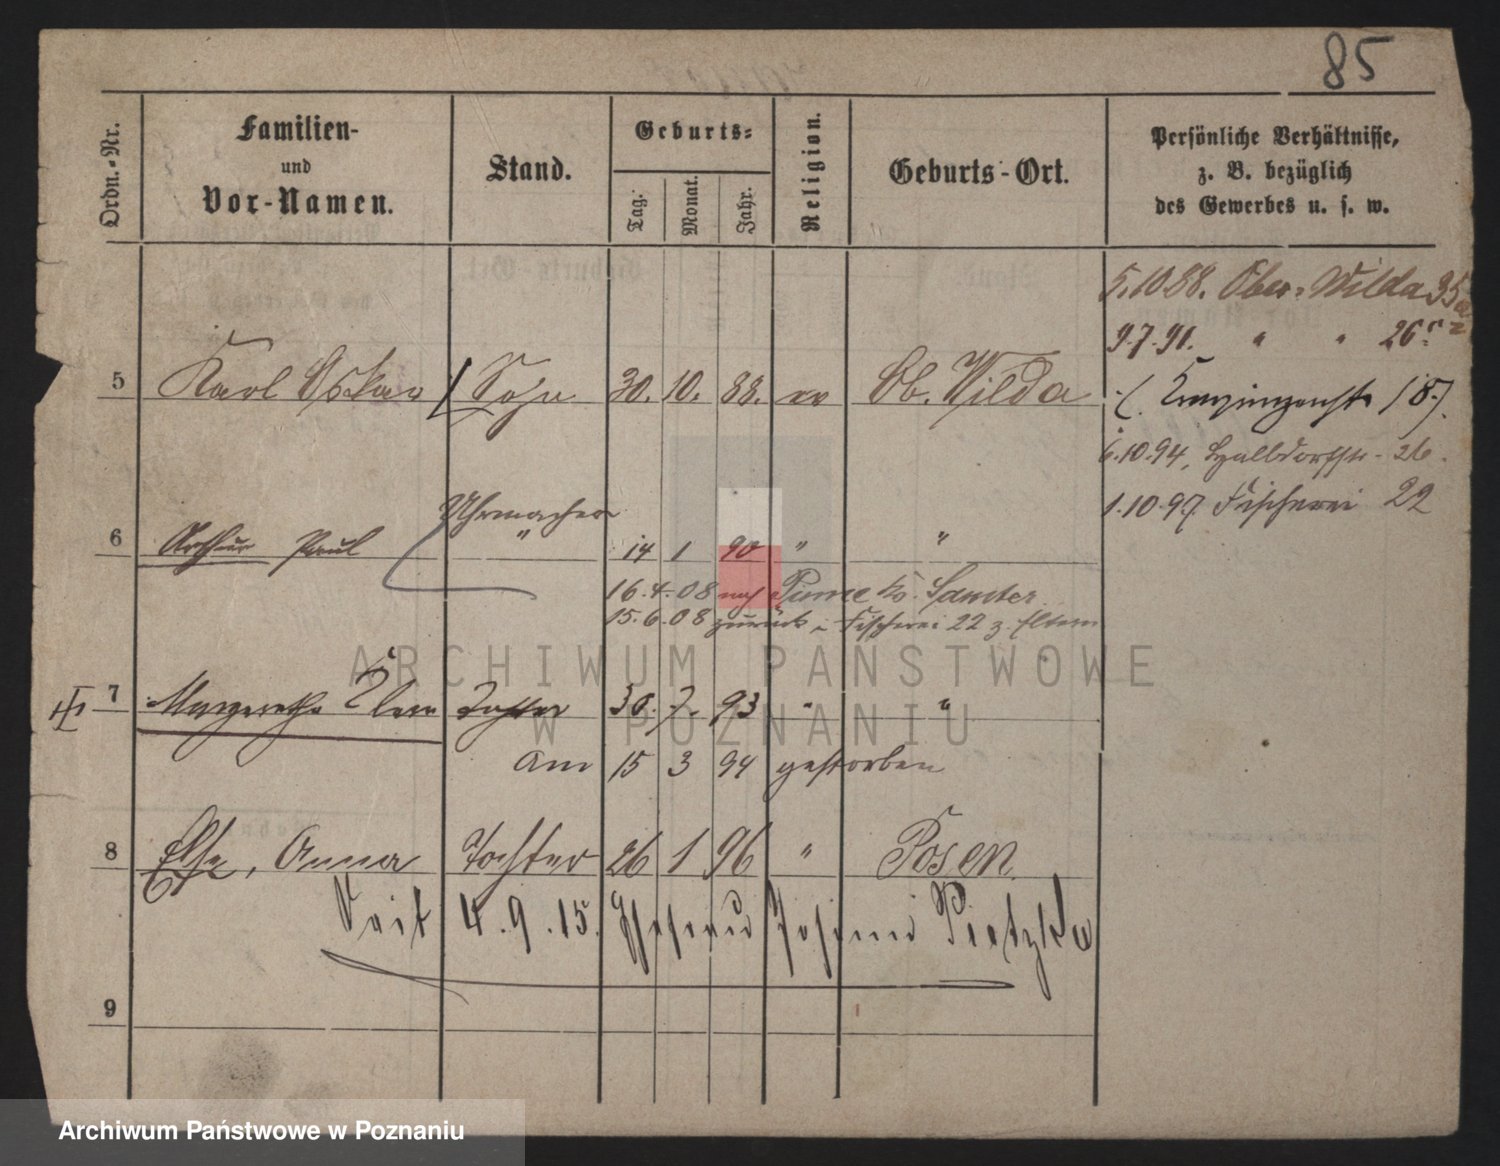 85
Ordn.-Nr.
Familien-
und
Vor-Namen.
Stand.
Geburts-
Tag.
Monat.
Jahr.
Religion.
Geburts-Ort.
Persönliche Verhältnisse,
z. B. bezüglich
des Gewerbes u. s. w.
5.10.88. Ober-Wilda 35a
9.7.91. " " 26
5 Karl Oskar Sohn 30. 10. 88. ev Ob. Wilda
( 18.)
6.10.94, 26.
1.10.97. Fischerei 22
Uhrmacher
6 Arthur Paul " 14 1 90 " "
16.4.08 nach Pinne Kr. Samter
15.6.08 zurück Fischerei 22 z. Eltern
ARCHIWUM PAŃSTWOWE
7 Margarethe Klara Tochter 30. 7. 93 " "
W POZNANIU
Am 15 3 94 gestorben
8 Else, Anna Tochter 26 1 96 " Posen
Seit 4.9.15. Ehefrau Pietzke
9
Archiwum Państwowe w Poznaniu